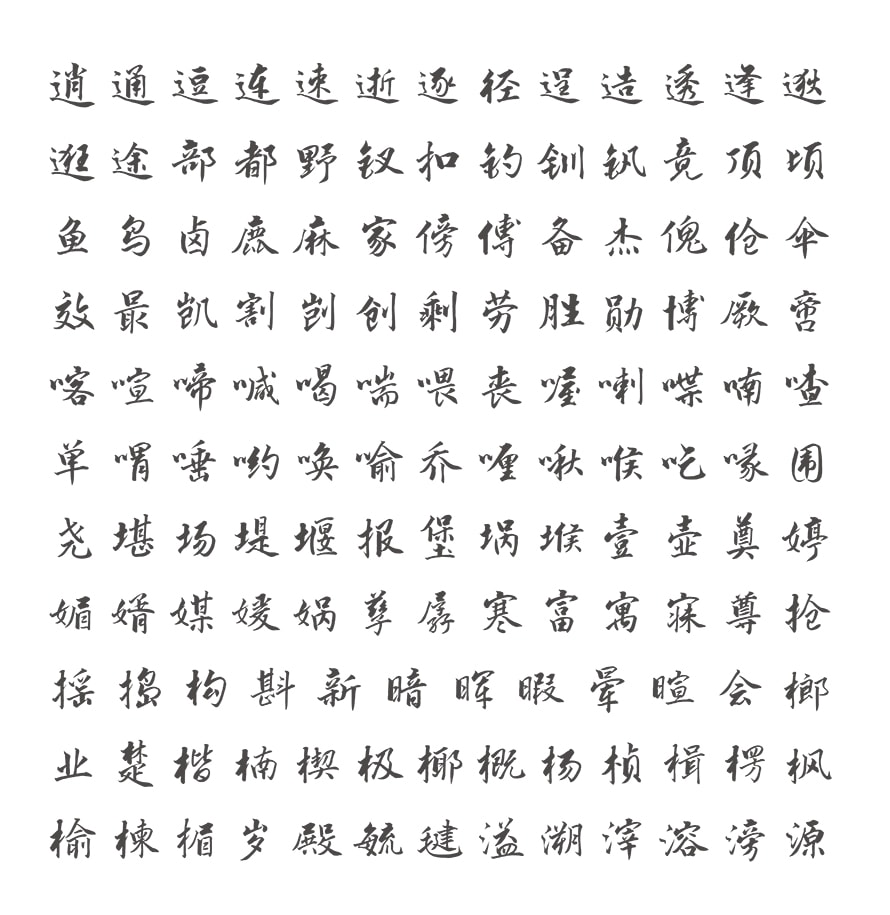 逍 通 逗 连 速 逝 逐 径 逞 造 透 逢 逖
逛 途 部 都 野 钗 扣 钓 钏 钒 竟 顶 顷
鱼 鸟 卤 鹿 麻 家 傍 傅 备 杰 傀 伧 伞
效 最 凯 割 剀 创 剩 劳 胜 勋 博 厥 啻
喀 喧 啼 喊 喝 喘 喂 丧 喔 喇 喋 喃 喳
单 喟 唾 哟 唤 喻 乔 喱 啾 喉 吃 喙 围
尧 堪 场 堤 堰 报 堡 埚 堠 壹 壶 奠 婷
媚 婿 媒 媛 娲 孳 孱 寒 富 寓 寐 尊 抢
摇 捣 构 斟 新 暗 晖 暇 晕 暄 会 榔
业 楚 楷 楠 楔 极 椰 概 杨 桢 楫 楞 枫
榆 楝 楣 岁 殿 毓 毽 溢 溯 滓 溶 滂 源